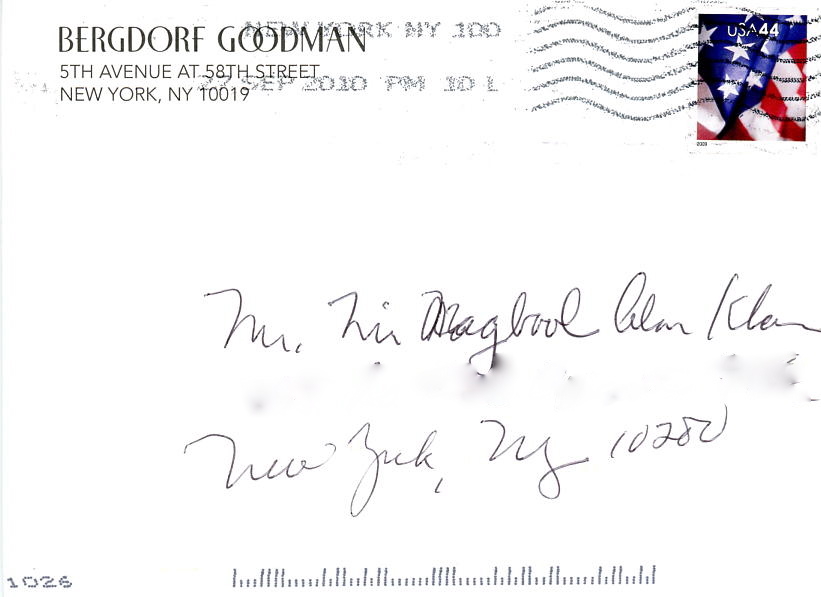 BERGDORF GOODMAN
5TH AVENUE AT 58TH STREET
NEW YORK, NY 10019
NEW YORK NY 100
SEP 2010 PM 10 L
USA44
2009
Mr. Mir Magbool Alam Khan
New York, NY 10280
1026